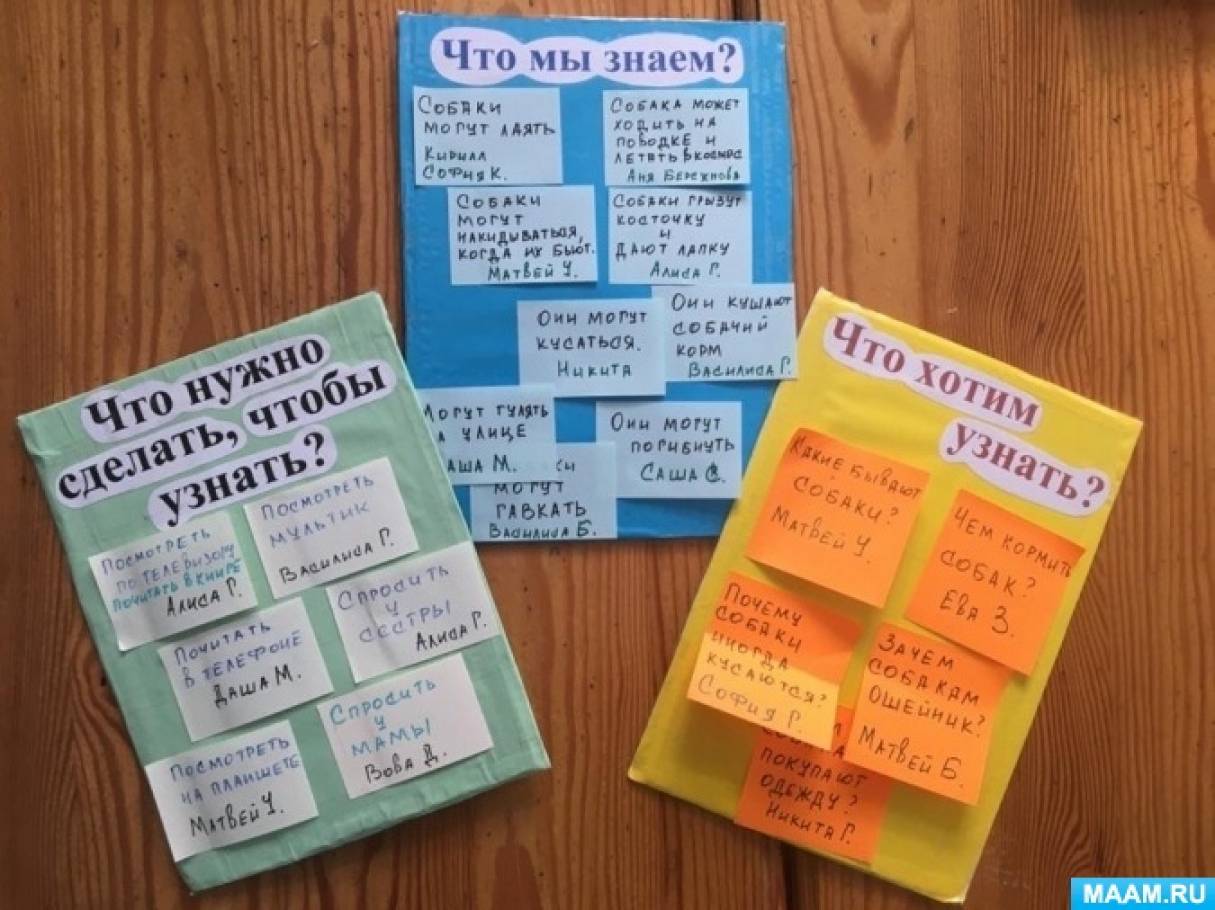 Что мы знаем?
Собаки
могут лаять
Кирилл
София К.
Собака может
ходить на
поводке и
летать в космос
Аня Бережнова
Собаки
могут
накидываться,
когда их бьют.
Матвей У.
Собаки грызут
косточку
и
дают лапку
Алиса Г.
Они могут
кусаться.
Никита
Они кушают
собачий
корм
Василиса Г.
могут гулять
улице
аша М.
Они могут
погибнуть
Саша С.
могут
гавкать
Василиса Б.
Что нужно
сделать, чтобы
узнать?
Посмотреть
мультик
Василиса Г.
Посмотреть
по телевизору
почитать в книге
Алиса Г.
Спросить
у
сестры
Алиса Г.
Почитать
в телефоне
Даша М.
Спросить
у
мамы
Вова Д.
Посмотреть
на планшете
Матвей У.
Что хотим
узнать?
Какие бывают
собаки?
Матвей У.
Чем кормить
собак?
Ева З.
Почему
собаки
иногда
кусаются?
София Г.
Зачем
собакам
ошейник?
Матвей Б.
покупают
одежду?
Никита Г.
MAAM.RU